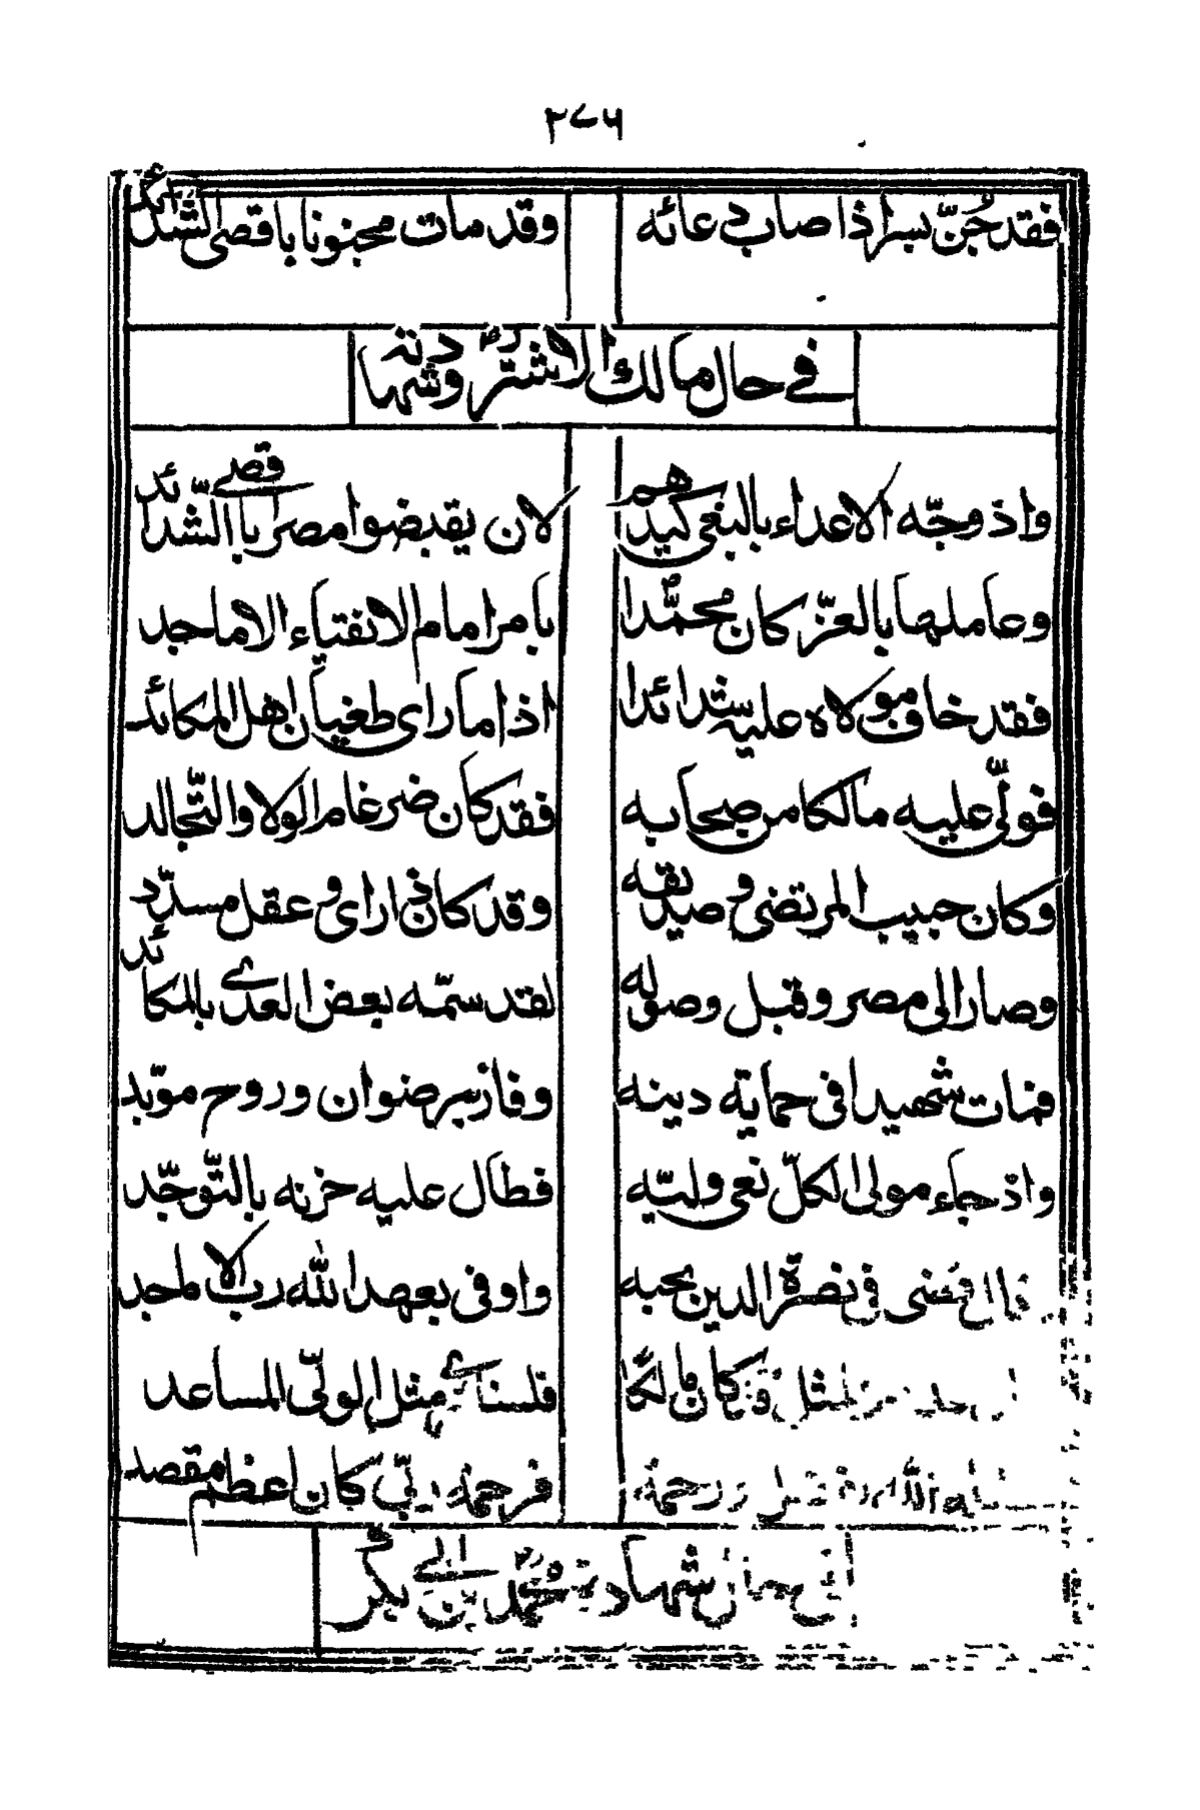 ۲۷۶
فقد جُنّ بسراذا صاب دعائه وقد مات مجنونا باقصى الشدائد
في حال مالك الاشتر وشهادته
واذ وجّه الاعداء بالبغى كيدهم لان يقبضوا مصر باقصى الشدائد
وعاملها بالعزّ كان محمّدا بامر امام الاتقياء الاماجد
فقد خاف مولاه عليه شدائدا اذا ما راى طغيان اهل المكائد
فولّى عليه مالكا من صحابه فقد كان ضرغام الولا والتّجالد
وكان حبيب المرتضى وصديقه وقد كان ذاراى وعقل مسدّد
وصار الى مصر وقبل وصوله لقد سمّه بعض العدى بالمكائد
فمات شهيدا فى حماية دينه وفاز برضوان وروح موبّد
واذ جاء مولى الكلّ نعى وليّه فطال عليه حزنه بالتّوجّد
فى نصرة الدين بحبه واوفى بعهد الله رب الاماجد
لمثل وكان مالكا فلسنا مثل الولّى المساعد
الله ورحمة فرحمة ربّي كان اعظم مقصد
فى بيان شهادة محمّد بن ابى بكر